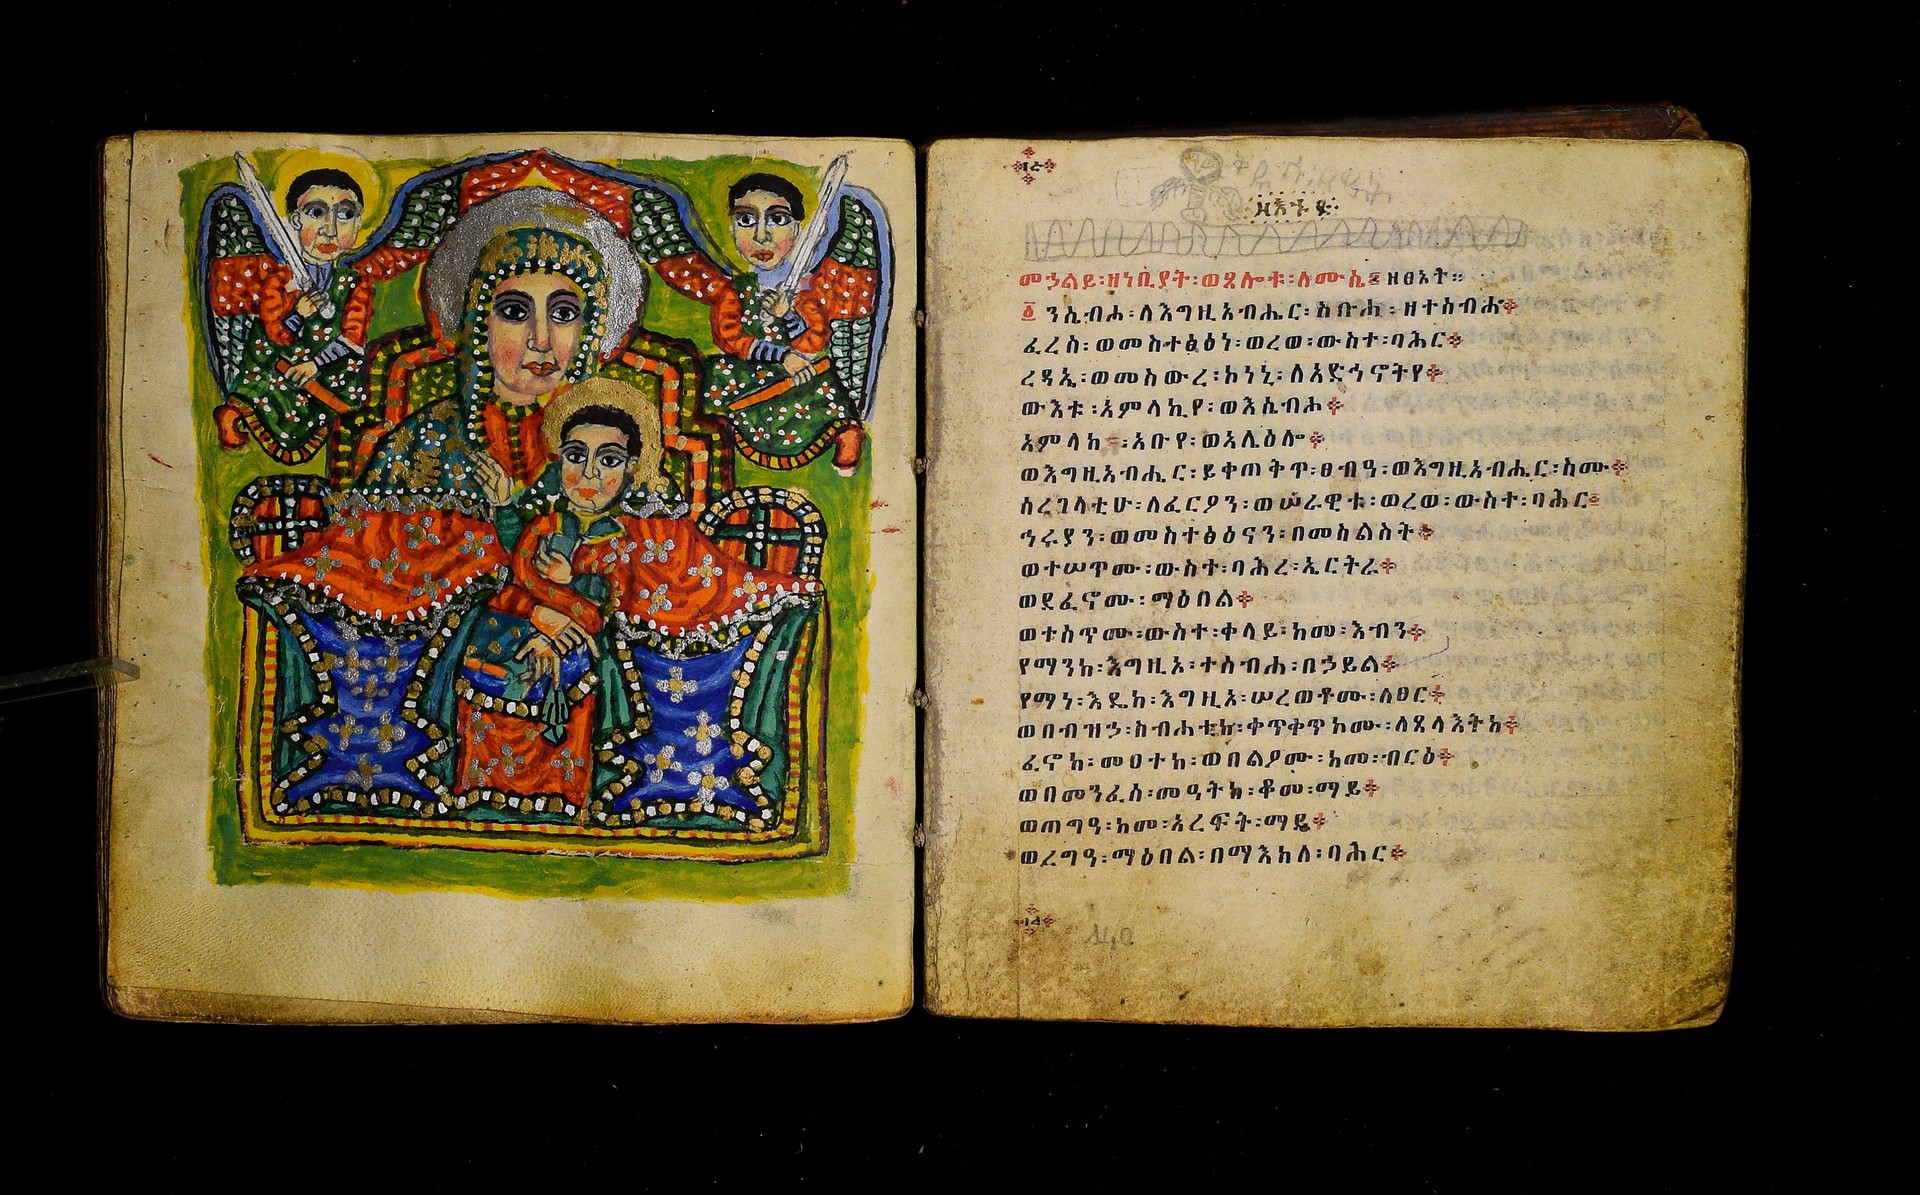 መኃልይ፡ዘነቢያት፡ወጸሎቱ፡ለሙሴ፤ዘፀአት።
፩ ንሴብሖ፡ለእግዚአብሔር፡ስቡሐ፡ዘተሰብሐ፨
ፈረሰ፡ወመስተፅዕነ፡ወረወ፡ውስተ፡ባሕር፨
ረዳኢ፡ወመሰውረ፡ኮነኒ፡ለአድኅኖትየ፨
ውእቱ፡አምላኪየ፡ወእሴብሖ፨
አምላከ፡አቡየ፡ወአሌዕሎ፨
ወእግዚአብሔር፡ይቀጠቅጥ፡ፀብዓ፡ወእግዚአብሔር፡ስሙ፨
ሰረገላቲሁ፡ለፈርዖን፡ወሠራዊቱ፡ወረወ፡ውስተ፡ባሕር፤
ኅሩያን፡ወመስተፅዕናን፡በመስልስት፨
ወተሠጥሙ፡ውስተ፡ባሕረ፡ኤርትራ፨
ወደፈኖሙ፡ማዕበል፨
ወተሰጥሙ፡ውስተ፡ቀላይ፡ከመ፡እብን፨
የማንከ፡እግዚኦ፡ተሰብሐ፡በኃይል፨
የማነ፡እዴከ፡እግዚኦ፡ሠረወቶሙ፡ለፀር፨
ወበብዝኃ፡ስብሐቲከ፡ቀጥቀጥኮሙ፡ለጸላእትከ፨
ፈኖከ፡መዐተከ፡ወበልዖሙ፡ከመ፡ብርዕ፨
ወበመንፈሰ፡መዓትከ፡ቆመ፡ማይ፨
ወጠግዓ፡ከመ፡አረፍት፡ማይ፨
ወረግዓ፡ማዕበል፡በማእከለ፡ባሕር፨
140